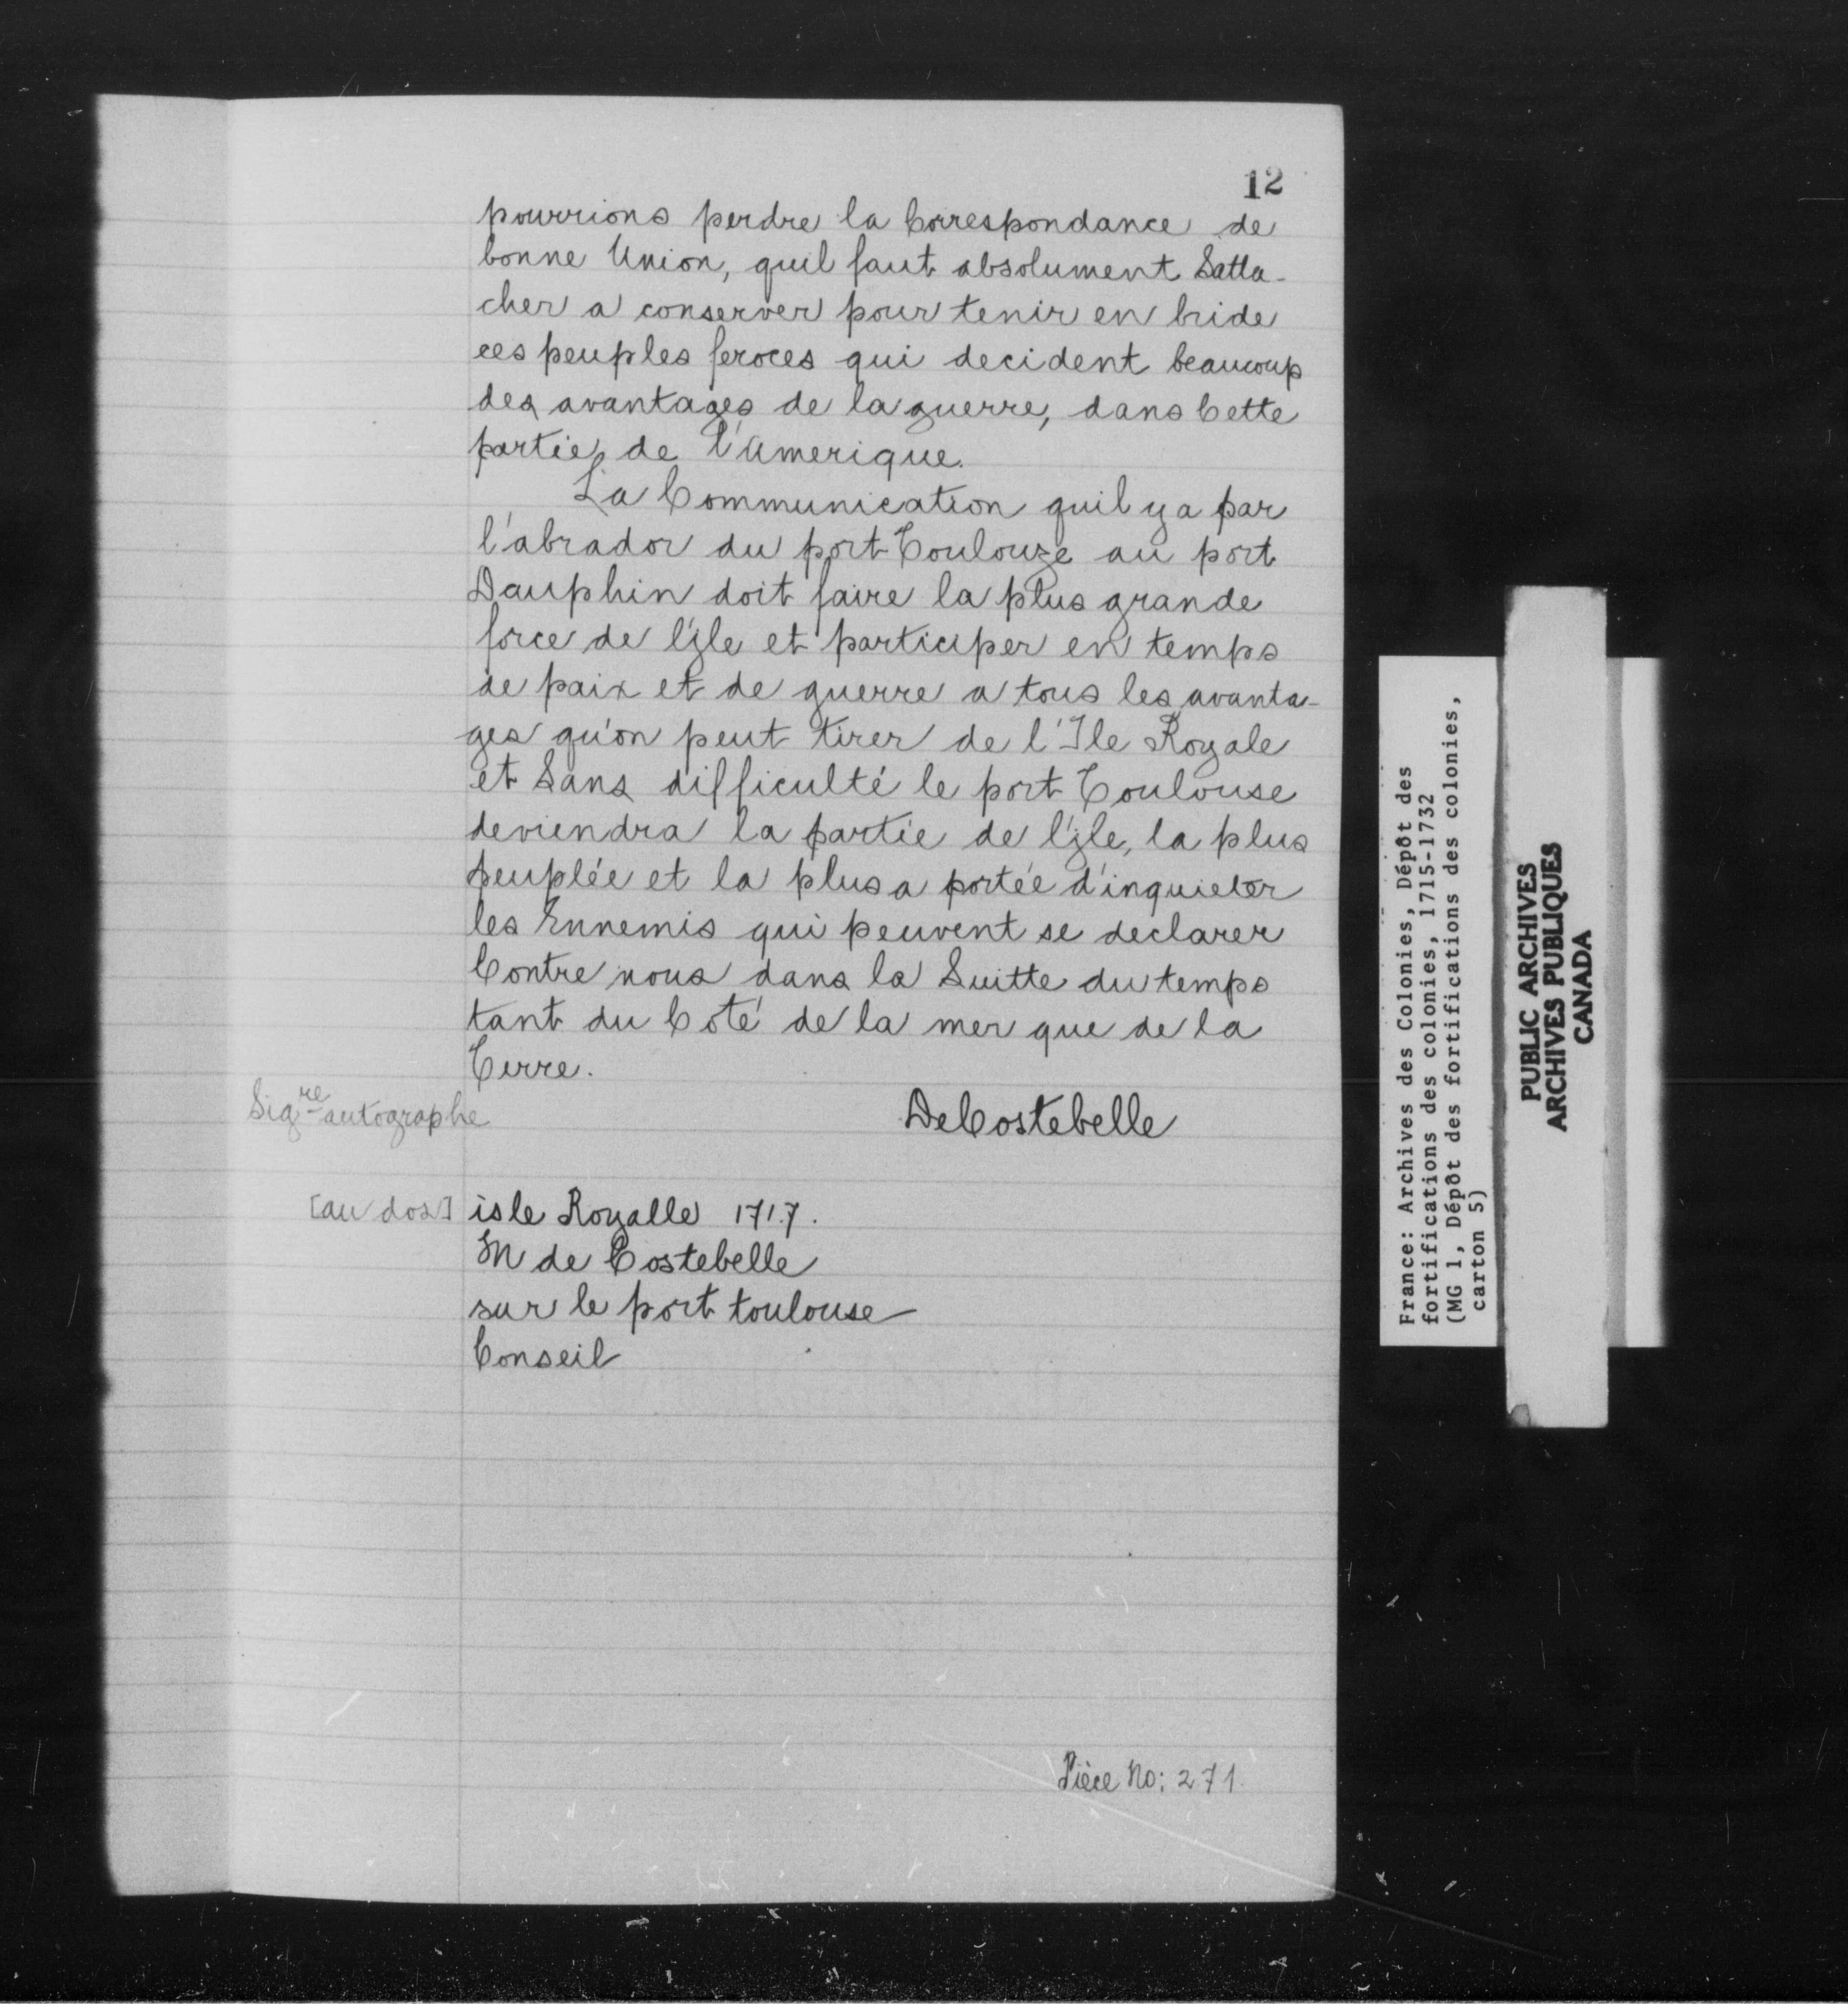 12
pourrions perdre la Correspondance de
bonne Union, quil faut absolument Satta-
cher a conserver pour tenir en bride
ces peuples feroces qui decident beaucoup
des avantages de la guerre, dans Cette
partie de l'Amerique.
La Communication quil y a par
l'abrador du port Toulouze au port
Dauphin doit faire la plus grande
force de l'jle et participer en temps
de paix et de guerre a tous les avanta-
ges qu'on peut tirer de l'Ile Royale
et Sans difficulté le port Toulouse
deviendra la partie de l'jle, la plus
peuplée et la plus a portée d'inquieter
les Ennemis qui peuvent se declarer
Contre nous dans la Suitte du temps
tant du Coté de la mer que de la
Terre.
Sigre autographe
DeCostebelle
[au dos] isle Royalle 1717.
M de Costebelle
sur le port toulouse
Conseil
Pièce No: 271
France: Archives des Colonies, Dépôt des
fortifications des colonies, 1715-1732
(MG 1, Dépôt des fortifications des colonies,
carton 5)
PUBLIC ARCHIVES
ARCHIVES PUBLIQUES
CANADA